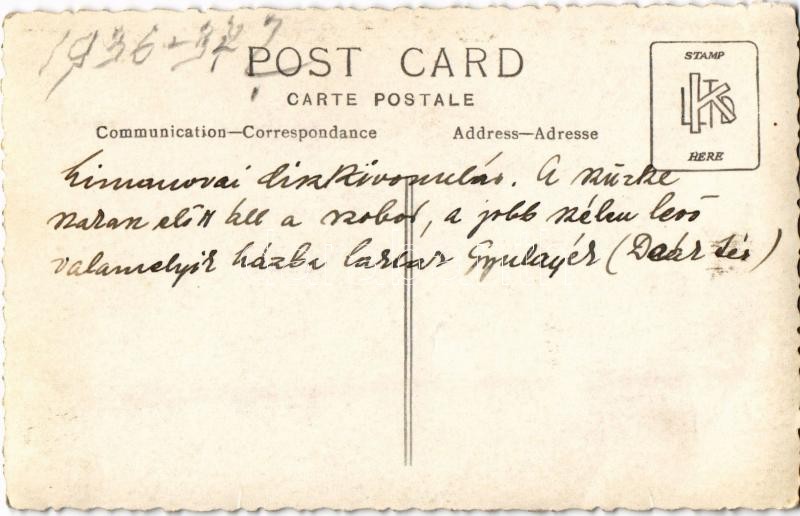 1936-37?
POST CARD
CARTE POSTALE
Communication—Correspondance
Address—Adresse
STAMP
HERE
Limanovai díszkivonulás. A szürke
kaszárnya előtt áll a szobor, a jobb szélen levő
valamelyik házba laktak Gyulayék (Deák tér)